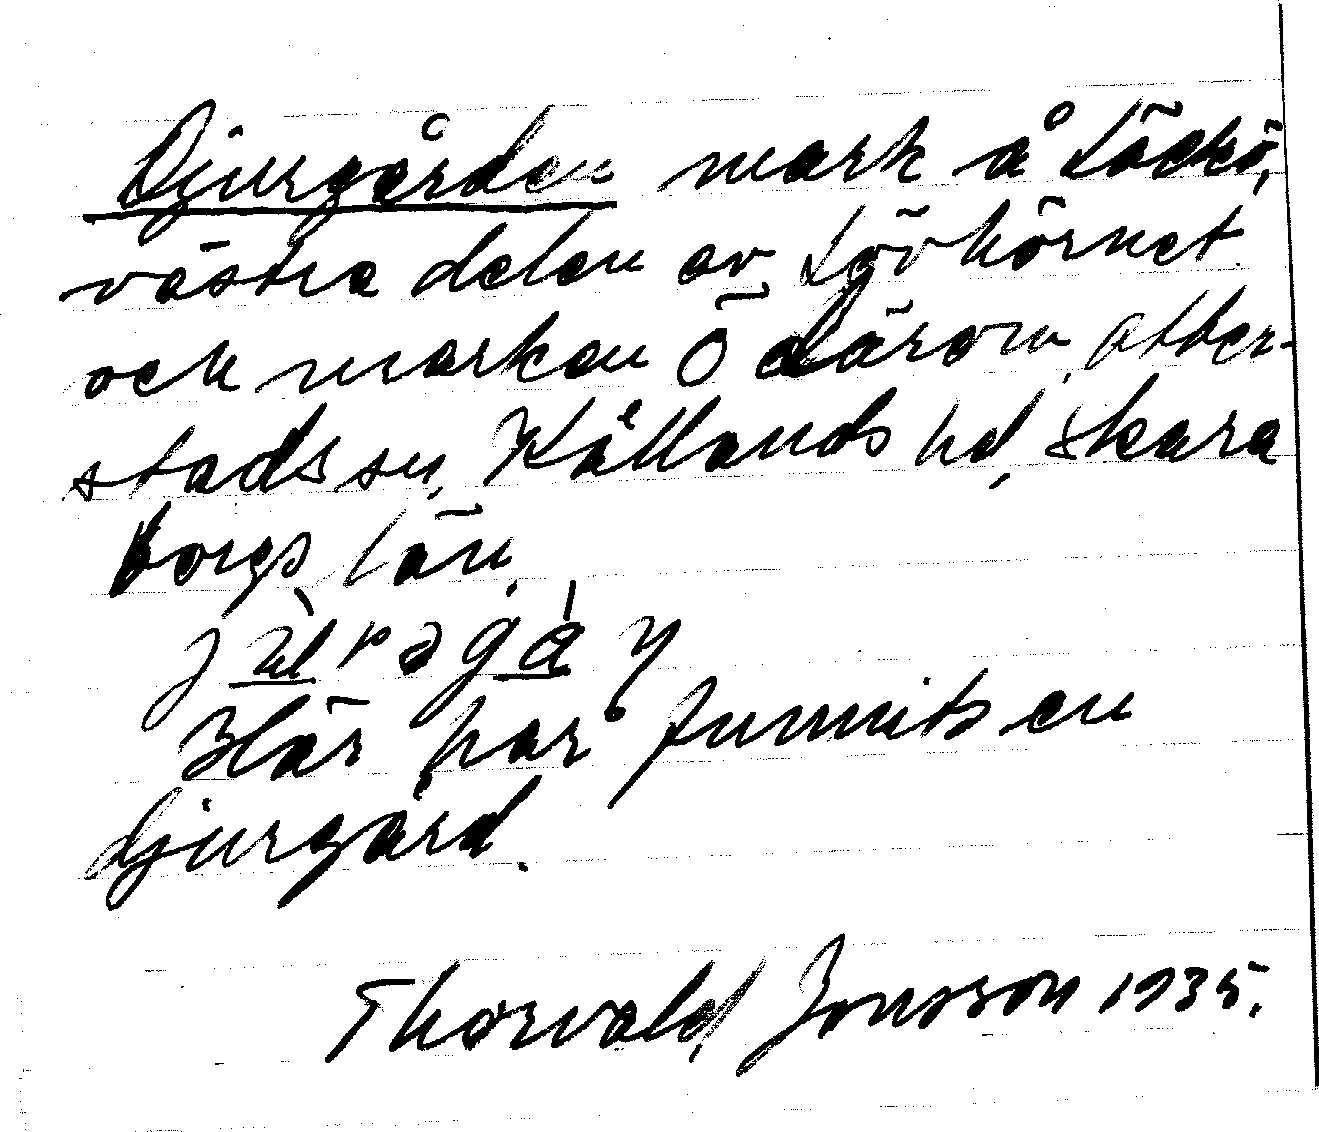 Djurgården mark å Läckö,
västra delen av Lövhörnet
och marken Ö därom, Otter-
stads sn, Kållands hd, Skara
borgs län.
Här har funnits en
djurgård.
Thorvald Jonsson 1935.